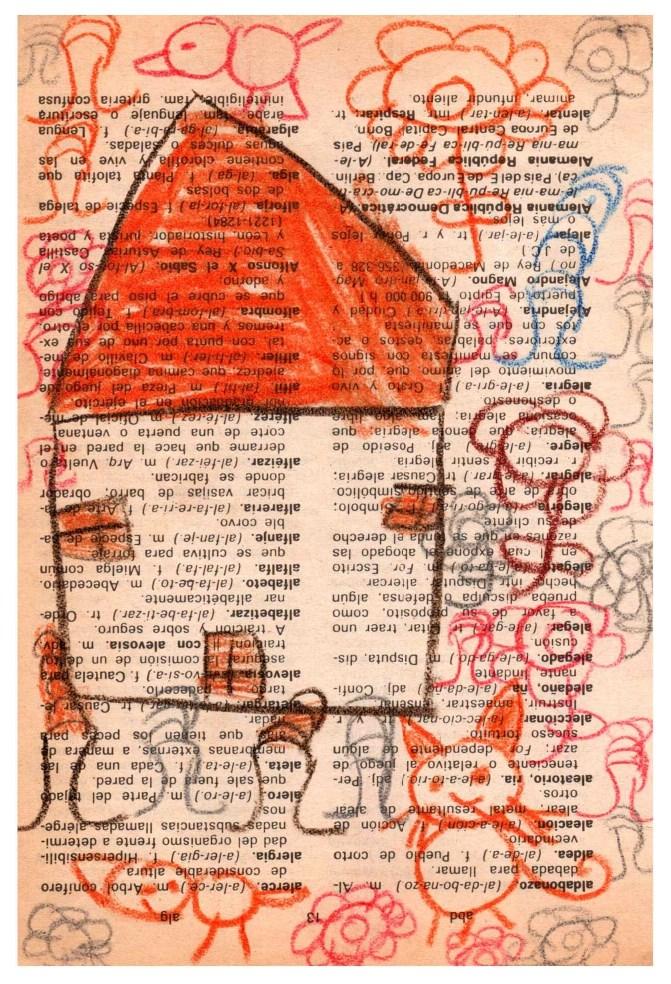 abd 13 alg
aldabonazo. (al-da-bo-na-zo) m. Al-
dabada para llamar.
aldea. (al-de-a.) f. Pueblo de corto
vecindario.
aleación. (a-le-a-ción.) f. Acción de
alear. metal resultante de alear
otros.
aleatorio, ria. (a-lea-to-rio,) adj. Per-
teneciente o relativo al juego de
azar. Fig. dependiente de algún
suceso fortuito.
aleccionar. (a-lec-cio-nar) tr. y r.
Instruir, amaestrar, enseñar.
aledaño, ña. (a-le-da-ño) adj. Confi-
nante, lindante.
alegado. (a-le-ga-do.) m. Disputa, dis-
cusión.
alegar. (a-le-gar.) tr. citar, traer uno
a favor de su propósito, como
prueba, disculpa o defensa, algún
hecho. intr. Disputar, altercar.
alegato. (a-le-ga-to) m. For. Escrito
en el cual expone el abogado las
razones en que se funda el derecho
de su cliente.
alegoría. (a-le-go-rí-a.) f. Símbolo;
obra de arte de sentido simbólico.
alegrar. (a-le-grar.) tr. Causar alegría
r. recibir o sentir alegría
alegre. (a-le-gre.) adj. Poseído de
alegría; que denota alegría; que
ocasiona alegría;
deshonesto
alegría. (a-le-grí-a.) f. Grato y vivo
movimiento del ánimo, que, por lo
común, se manifiesta con signos
exteriores, palabras, gestos o ac-
tos con que se manifiesta.
Alejandría. (A-le-jan-drí-a) Ciudad y
puerto de Egipto. 900 000 h
Alejandro Magno. (A-le-jan-dro Mag-
no.) Rey de Macedonia, 356-328 a
de J.C.)
alejar. (a-le-jar.) tr. y r. Poner lejos
o más lejos.
Alemania República Democrática. (A-
le-ma-nia Re-pú-bli-ca De-mo-crá-ti-
ca). País del E de Europa. Cap: Berlín
Alemania República Federal. (A-le-
ma-nia Re-pú-bli-ca Fe-de-ral) País
de Europa Central. Capital: Bonn.
alentar. (a-len-tar.) intr. Respirar: tr.
animar, infundir aliento.
alerce. (a-ler-ce.) m. Arbol conífero
de considerable altura
alergia. (a-ler-gia.) f. Hipersensibili-
dad del organismo frente a determi-
nadas substancias llamadas alérge-
nos.
alero. (a-le-ro.) m. Parte del tejado
que sale fuera de la pared.
aleta. (a-le-ta.) f. Cada una de las
membranas externas, a manera de
alas, que tienen los peces para
nadar.
aletargar. tr. Causar le-
targo. r. padecerlo.
alevosía. (a-le-vo-sí-a.) f. Cautela para
asegurar la comisión de un delito;
traición. con alevosía. m. adv.
A traición y sobre seguro.
alfabetizar. (al-fa-be-ti-zar.) tr. Orde-
nar alfabéticamente.
alfabeto. (al-fa-be-to) m. Abecedario.
alfalfa. (al-fal-fa.) f. Mielga común
que se cultiva para forraje.
alfanje. (al-fan-je.) m. Especie de sa-
ble corvo.
alfarería. (al-fa-re-rí-a.) f. Arte de fa-
bricar vasijas de barro; obrador
donde se fabrican.
alféizar. (al-féi-zar.) m. Arq. Vuelta o
derrame que hace la pared en el
corte de una puerta o ventana.
alférez. (al-fé-rez.) m. Oficial de me-
nor graduación en el ejército.
alfil. (al-fil.) m Pieza del juego de
ajedrez que camina diagonalmente
alfiler. (al-fi-ler.) m. Clavillo de me-
tal, con punta por uno de sus ex-
tremos y una cabecilla por el otro
alfombra. (al-fom-bra.) f. Tejido con
que se cubre el piso para abrigo
y adorno;
Alfonso X el Sabio. (Al-fon-so X el
Sa-bio.) Rey de Asturias, Castilla
y León, historiador, jurista y poeta
(1221-1284).
alforja. (al-for-ja.) f. Especie de talega
de dos bolsas
alga. (al-ga.) f. Planta talofita que
contiene clorofila y vive en las
aguas dulces o saladas.
algarabía. (al-ga-ra-bí-a.) f. Lengua
árabe; fam. lenguaje o escritura
ininteligible; fam. gritería confusa